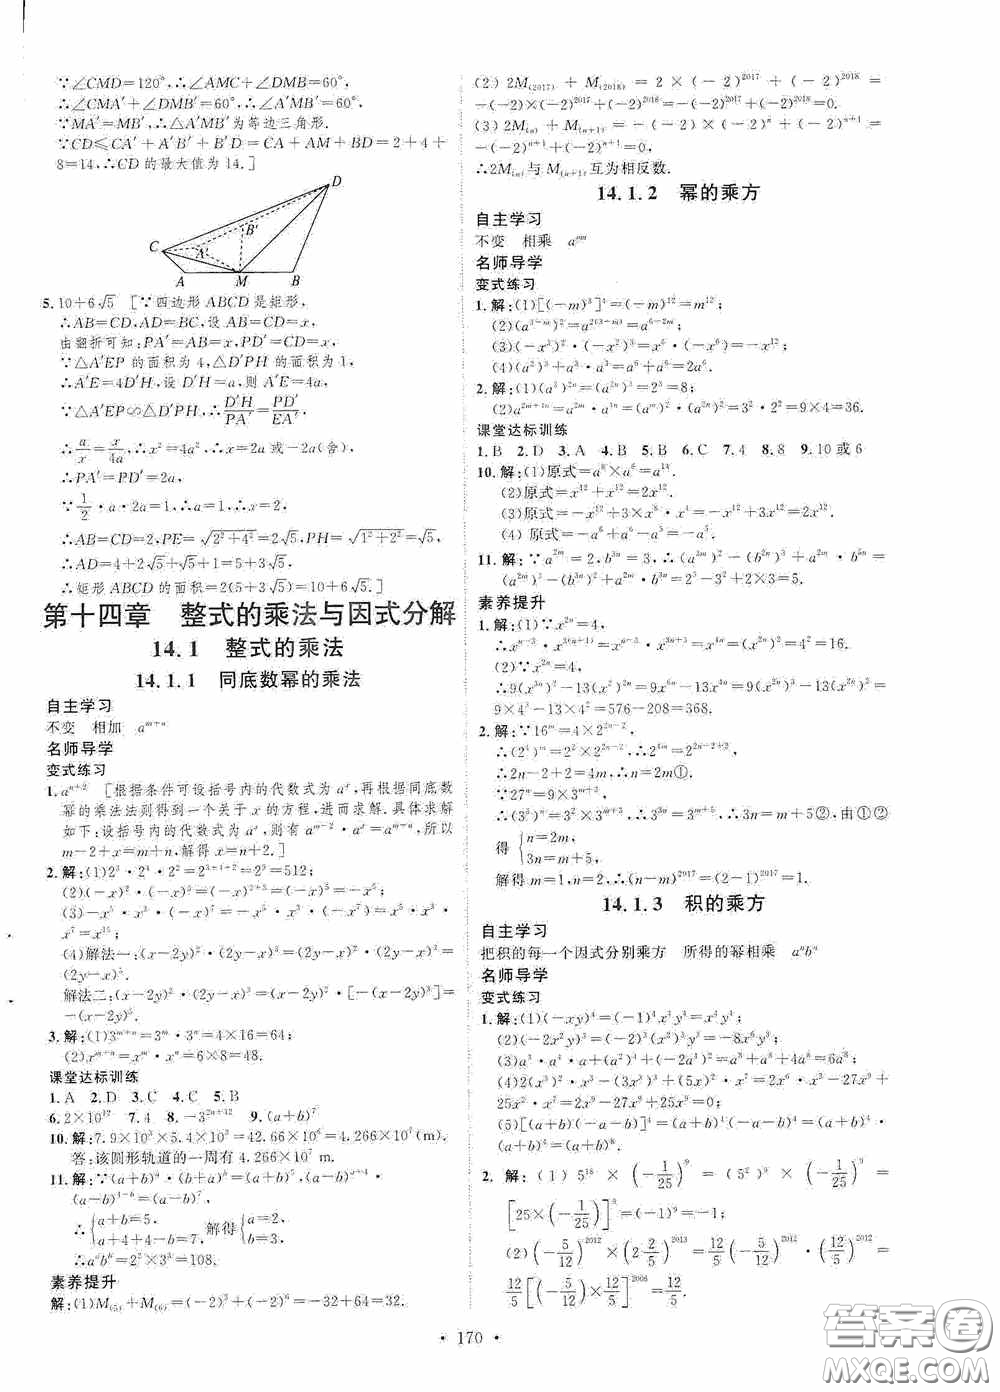 ∵∠CMD=120°,∴∠AMC+∠DMB=60°.
∴∠CMA′+∠DMB′=60°,∴∠A′MB′=60°.
∵MA′=MB′,∴△A′MB′为等边三角形.
∵CD≤CA′+A′B′+B′D=CA+AM+BD=2+4+
8=14,∴CD的最大值为14.]
D
B′
C
A′
A
M
B
5. 10+6√5 [∵四边形ABCD是矩形,
∴AB=CD,AD=BC,设AB=CD=x,
由翻折可知:PA′=AB=x,PD′=CD=x.
∵△A′EP的面积为4,△D′PH的面积为1,
∴A′E=4D′H,设D′H=a,则A′E=4a,
∵△A′EP∽△D′PH,∴D′H/PA′=PD′/EA′.
∴a/x=x/4a,∴x²=4a²,∴x=2a或−2a(舍),
∴PA′=PD′=2a,
∵1/2·a·2a=1,∴a=1,∴x=2,
∴AB=CD=2,PE=√(2²+4²)=2√5,PH=√(1²+2²)=√5,
∴AD=4+2√5+√5+1=5+3√5,
∴矩形ABCD的面积=2(5+3√5)=10+6√5.]
第十四章 整式的乘法与因式分解
14.1 整式的乘法
14.1.1 同底数幂的乘法
自主学习
不变 相加 a^(m+n)
名师导学
变式练习
1. a^(n+2) [根据条件可设括号内的代数式为a^x,再根据同底数
幂的乘法法则得到一个关于x的方程,进而求解.具体求解
如下:设括号内的代数式为a^x,则有a^(m−2)·a^x=a^(m+n),所以
m−2+x=m+n,解得x=n+2.]
2. 解:(1)2³·2⁴·2²=2^(3+4+2)=2⁹=512;
(3)−x·(−x)²·(−x)⁴=−x·x²·x⁴=−
x⁷=x⁷
(4)解法一:(x−2y)²·(2y−x)³=(2y−x)²·(2y−x)³=
(2y−x)⁵.
解法二:(x−2y)²·(2y−x)³=(x−2y)²·[−(x−2y)³]=
−(x−2y)⁵.
3. 解:(1)3^(m+n)=3^m·3^n=4×16=64;
(2)x^(m+n)=x^m·x^n=6×8=48.
课堂达标训练
1. A 2. D 3. C 4. C 5. B
6. 2×10¹² 7. 4 8. −3^(2n+12) 9. (a+b)⁷
10. 解:7.9×10³×5.4×10³=42.66×10⁶=4.266×10⁷(m).
答:该圆形轨道的一周有4.266×10⁷ m.
11. 解:∵(a+b)^a·(b+a)^b=(a+b)⁵,(a−b)^(a+4)·
(a−b)^(4−b)=(a−b)⁷,
∴{a+b=5, a+4+4−b=7, 解得{a=2, b=3.
∴a^a b^b=2²×3³=108.
素养提升
解:(1)M₍₅₎+M₍₆₎=(−2)⁵+(−2)⁶=−32+64=32.
(2)2M₍₂₀₁₇₎+M₍₂₀₁₈₎=2×(−2)²⁰¹⁷+(−2)²⁰¹⁸=
−(−2)×(−2)²⁰¹⁷+(−2)²⁰¹⁸=−(−2)²⁰¹⁸+(−2)²⁰¹⁸=0.
(3)2M₍ₙ₎+M₍ₙ₊₁₎=−(−2)×(−2)^n+(−2)^(n+1)=
−(−2)^(n+1)+(−2)^(n+1)=0.
∴2M₍ₙ₎与M₍ₙ₊₁₎互为相反数.
14.1.2 幂的乘方
自主学习
不变 相乘 a^(mn)
名师导学
变式练习
1. 解:(1)[(−m)³]⁴=(−m)¹²=m¹²;
(2)(a^(3−m))²=a^(2(3−m))=a^(6−2m);
(3)(−x³)²·(−x²)³=x⁶·(−x⁶)=−x¹²;
(4)(a²)³+a³·a³=a⁶+a⁶=2a⁶.
2. 解:(1)(a³)^(2n)=(a^(2n))³=2³=8;
(2)a^(2m+4n)=a^(2m)·a^(4n)=(a^m)²·(a^(2n))²=3²·2²=9×4=36.
课堂达标训练
1. B 2. D 3. A 4. B 5. B 6. B 7. 4 8. 8 9. 10或6
10. 解:(1)原式=a⁸×a⁶=a¹⁴.
(2)原式=x¹²+x¹²=2x¹².
(3)原式=−x¹²+3×x⁸·x⁴=−x¹²+3x¹²=2x¹².
(4)原式=−a⁶+a⁶−a⁵=−a⁵.
11. 解:∵a^(2m)=2,b^(3n)=3,∴(a^(3m))²−(b^(2n))³+a^(2m)·b^(6n)=
(a^(2m))³−(b^(3n))²+a^(2m)·(b^(3n))²=2³−3²+2×3²=17.
素养提升
∴9(x^(3n))²−13(x²)^(2n)=9x^(6n)−13x^(4n)=9(x^(2n))³−13(x^(2n))²=
9×4³−13×4²=576−208=368.
2. 解:∵16^m=4×2^(2n−2),
∴(2⁴)^m=2²×2^(2n−2),∴2^(4m)=2^(2n−2+2),
∴2n−2+2=4m,∴n=2m①.
∵27^n=9×3^(m+3),
∴(3³)^n=3²×3^(m+3),∴3^(3n)=3^(m+5),∴3n=m+5②,由①②
得{n=2m, 3n=m+5.
解得m=1,n=2,∴(n−m)²⁰¹⁷=(2−1)²⁰¹⁷=1.
14.1.3 积的乘方
自主学习
把积的每一个因式分别乘方 所得的幂相乘 a^n b^n
名师导学
变式练习
1. 解:(1)(−xy)⁴=(−1)⁴x⁴y⁴=x⁴y⁴;
(2)(−2x²y)³=(−2)³(x²)³y³=−8x⁶y³;
(3)a³·a⁴·a+(a²)⁴+(−2a⁴)²=a⁸+a⁸+4a⁸=6a⁸.
(4)2(x³)²·x³−(3x³)³+(5x)²·x⁷=2x⁶·x³−27x⁹+
25x²·x⁷=2x⁹−27x⁹+25x⁹=0.
·(a+b)⁴=(a+b)⁸.
2. 解:(1)5¹⁸×(−1/25)⁹=(5²)⁹×(−1/25)⁹=
[25×(−1/25)]⁹=(−1)⁹=−1;
(2)(−5/12)²⁰¹²×(2 2/5)²⁰¹³=12/5(−5/12)²⁰¹²·(12/5)²⁰¹²=
12/5[(−5/12)×12/5]²⁰⁰⁸=12/5.
· 170 ·
答案圈
MXQE.COM